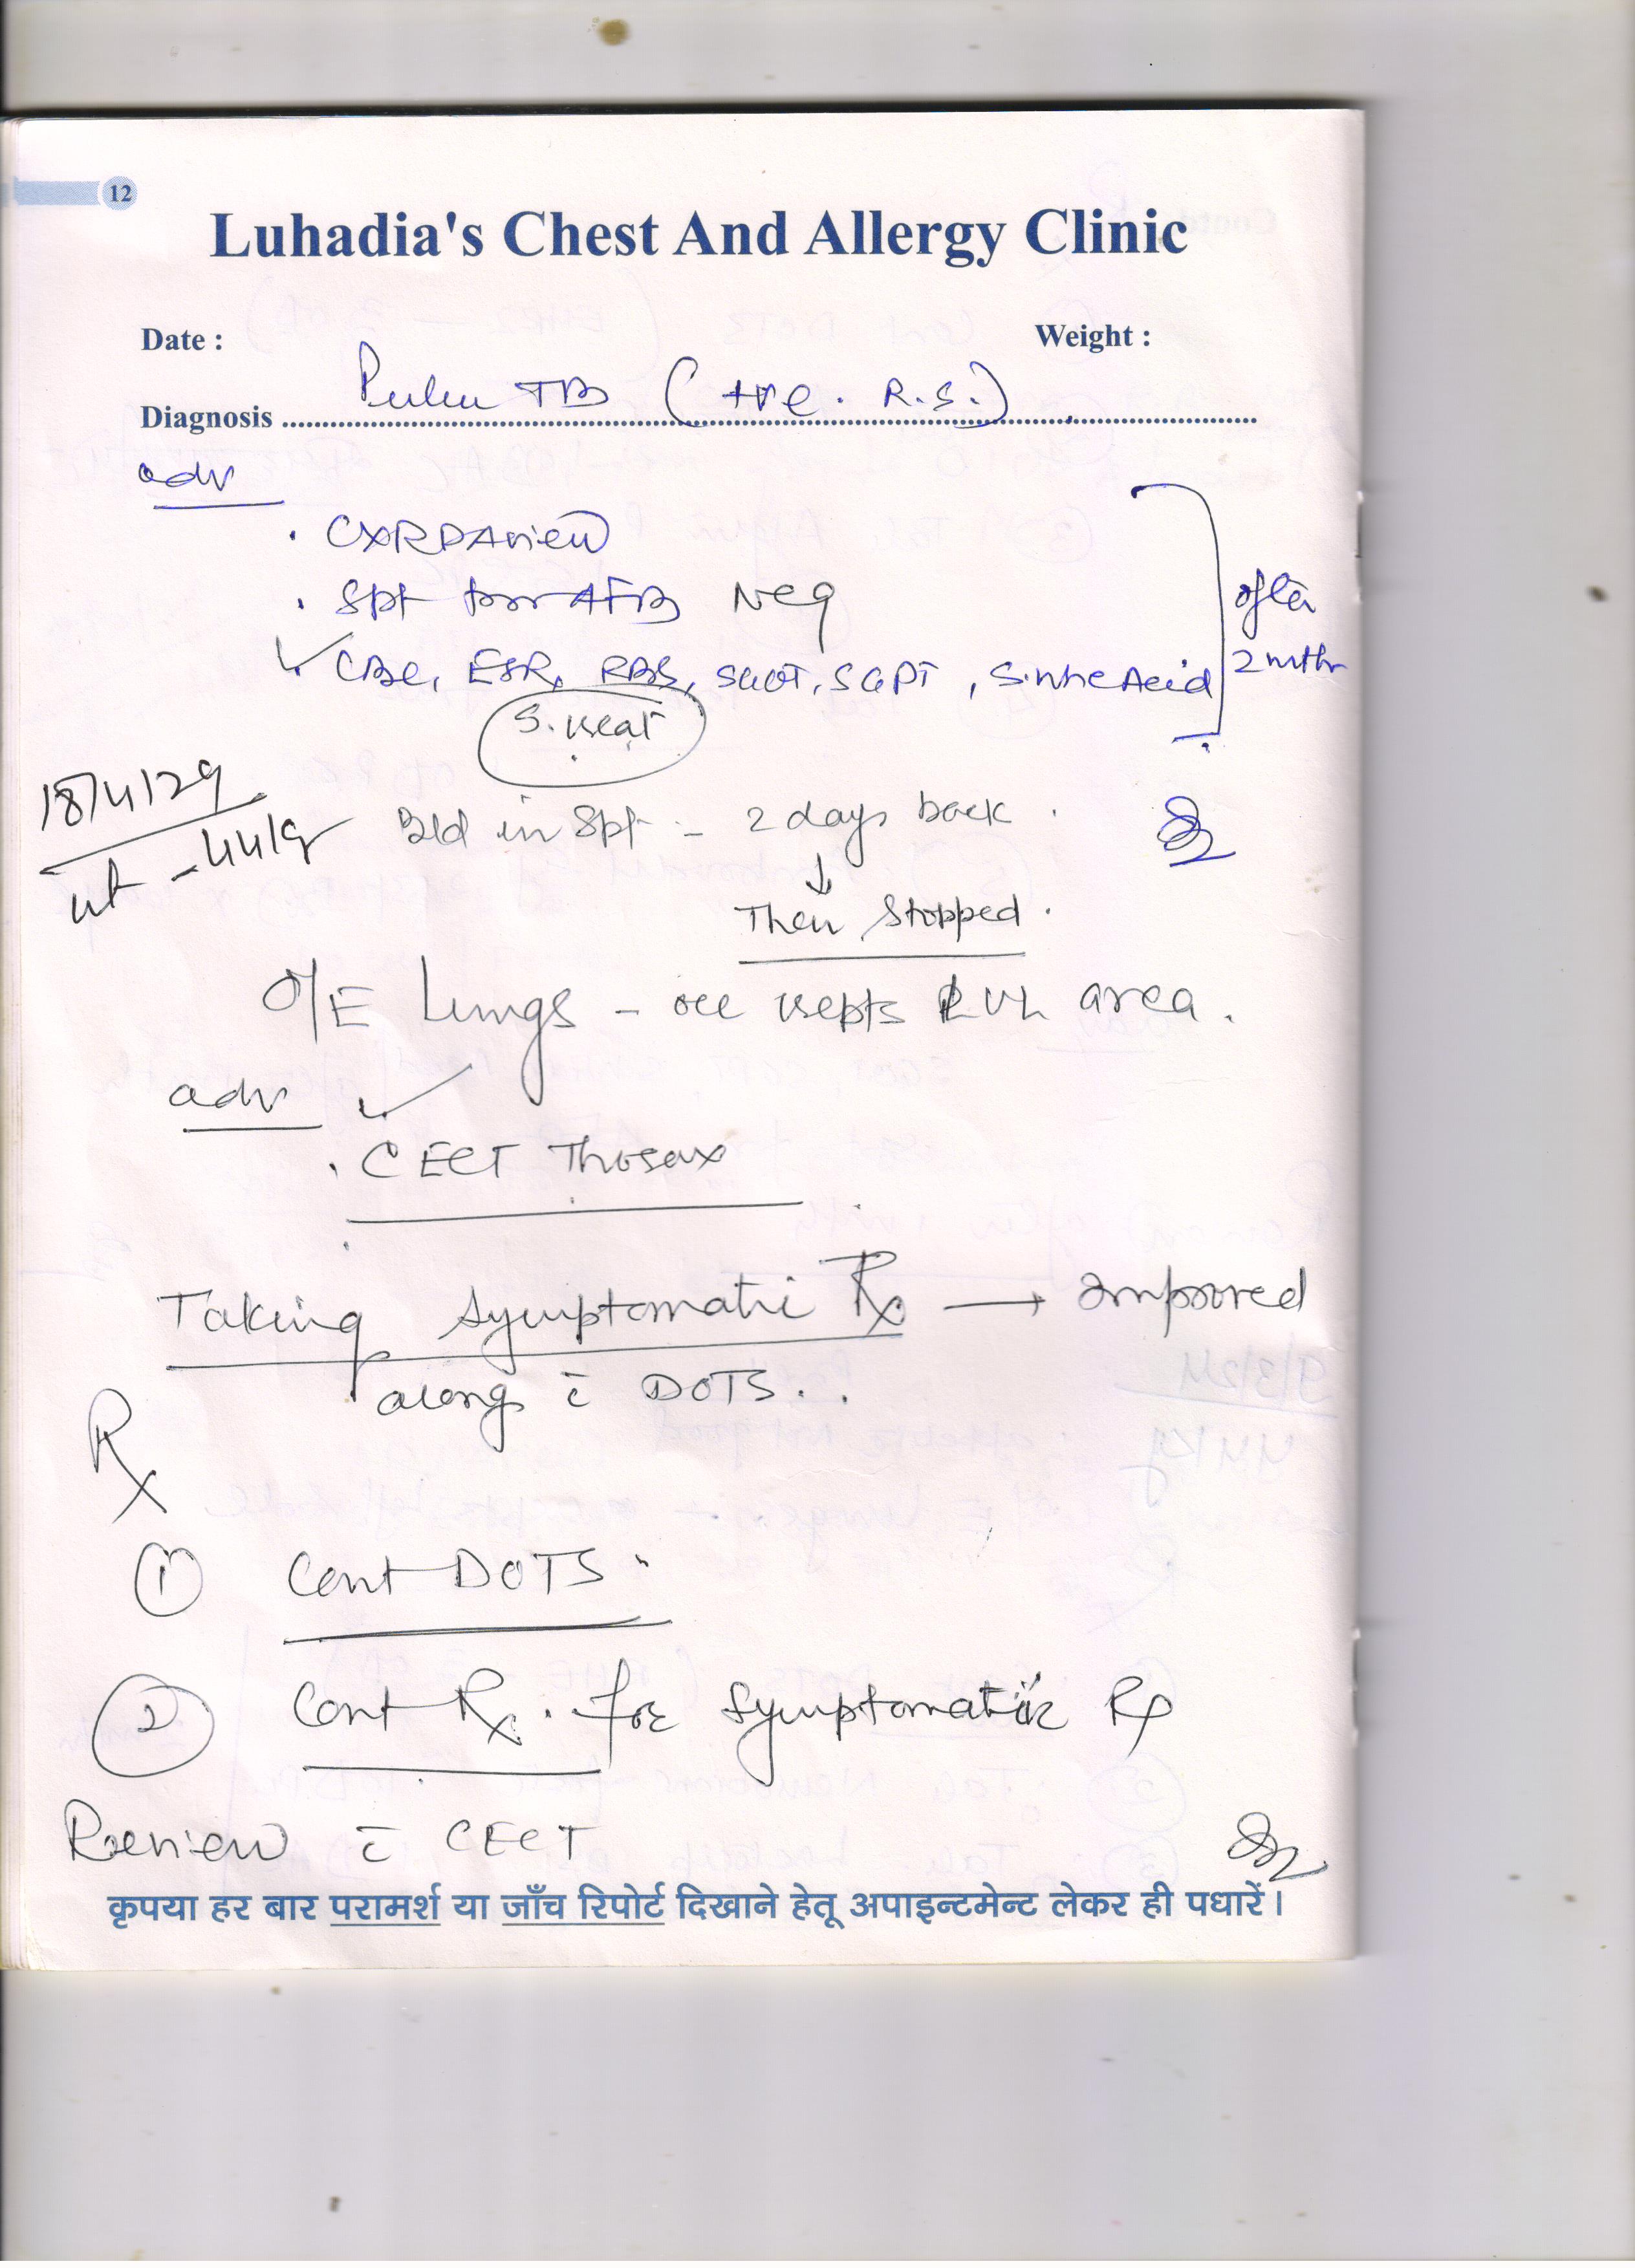 12
Luhadia's Chest And Allergy Clinic
Date :
Weight :
Diagnosis Pulm TB (+ve. R.S.)
adv
. CXR PA view
. Spt for AFB Neg
CBC, ESR, RBS, SGOT, SGPT, S. Uric Acid
after
2 mths
S. Creat
18/4/24
wt - 44kg
Bld in Spt - 2 days back .
↓
Then stopped .
O/E Lungs - occ crepts area .
adv
. CECT Thorax
Taking symptomatic Rx → Improved
along c̄ DOTS . .
Rx
① Cont DOTS .
② Cont Rx . for symptomatic Rx
Review c̄ CECT
कृपया हर बार परामर्श या जाँच रिपोर्ट दिखाने हेतू अपाइन्टमेन्ट लेकर ही पधारें।